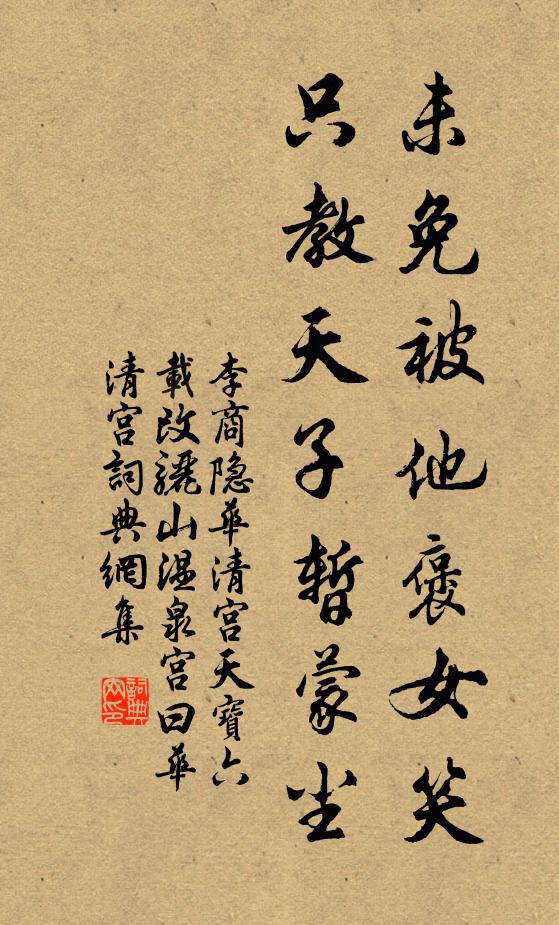 未免被他褒女笑
只教天子暂蒙尘
李商隐华清宫天寶六
載改驪山温泉宫曰华
清宫詞典網集
詞典
网印